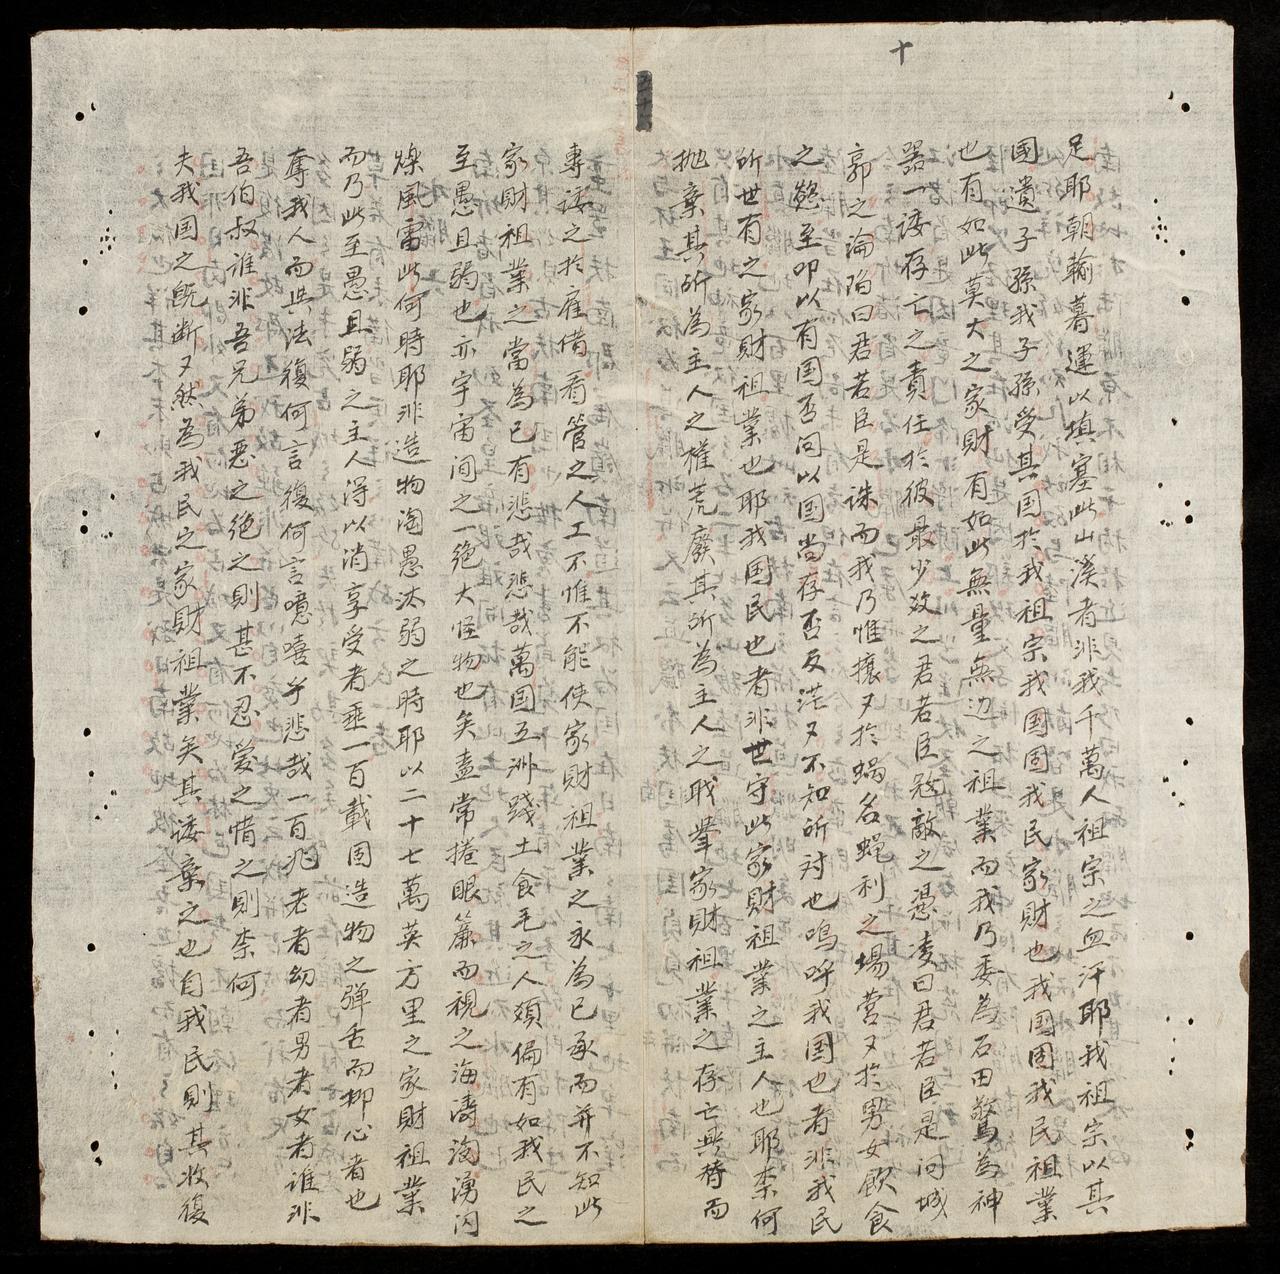 十
足耶朝輸暮運以填塞此山溪者非我千萬人祖宗之血汗耶我祖宗以其
國遺子孫我子孫受其国於我祖宗我国固我民家財也我国固我民祖業
也有如此莫大之家財有如此無量無边之祖業而我乃委為石田驚為神
器一諉存亡之責任於彼最少数之君若臣冦敵之憑凌曰君若臣是问城
郭之淪陷曰君若臣是誅而我乃惟攘〻於蝸名蝇利之場营〻於男女飲食
之慾至叩以有国否问以国尚存否反茫〻不知所对也嗚呼我国也者非我民
所世有之家財祖業也耶我国民也者非世守此家財祖業之主人也耶柰何
抛棄其所為主人之權荒廢其所為主人之职举家財祖業之存亡興替而
專諉之於雇借看管之人工不惟不能使家財祖業之永為已承而并不知此
家財祖業之當為已有悲哉悲哉萬国五洲踐土食毛之人類偏有如我民之
至愚且弱也亦宇宙间之一绝大怪物也矣盍常捲眼簾而視之海濤洶湧闪
爍風雷此何時耶非造物淘愚汰弱之時耶以二十七萬英方里之家財祖業
而乃此至愚且弱之主人得以消享受者垂一百載固造物之弾舌而抑心者也
奪我人而與法復何言復何言噫嘻乎悲哉一百兆老者幼者男者女者谁非
吾伯叔谁非吾兄弟惡之绝之則甚不忍爱之惜之則柰何
夫我国之既断〻然為我民之家財祖業矣其诿棄之也自我民則其收復